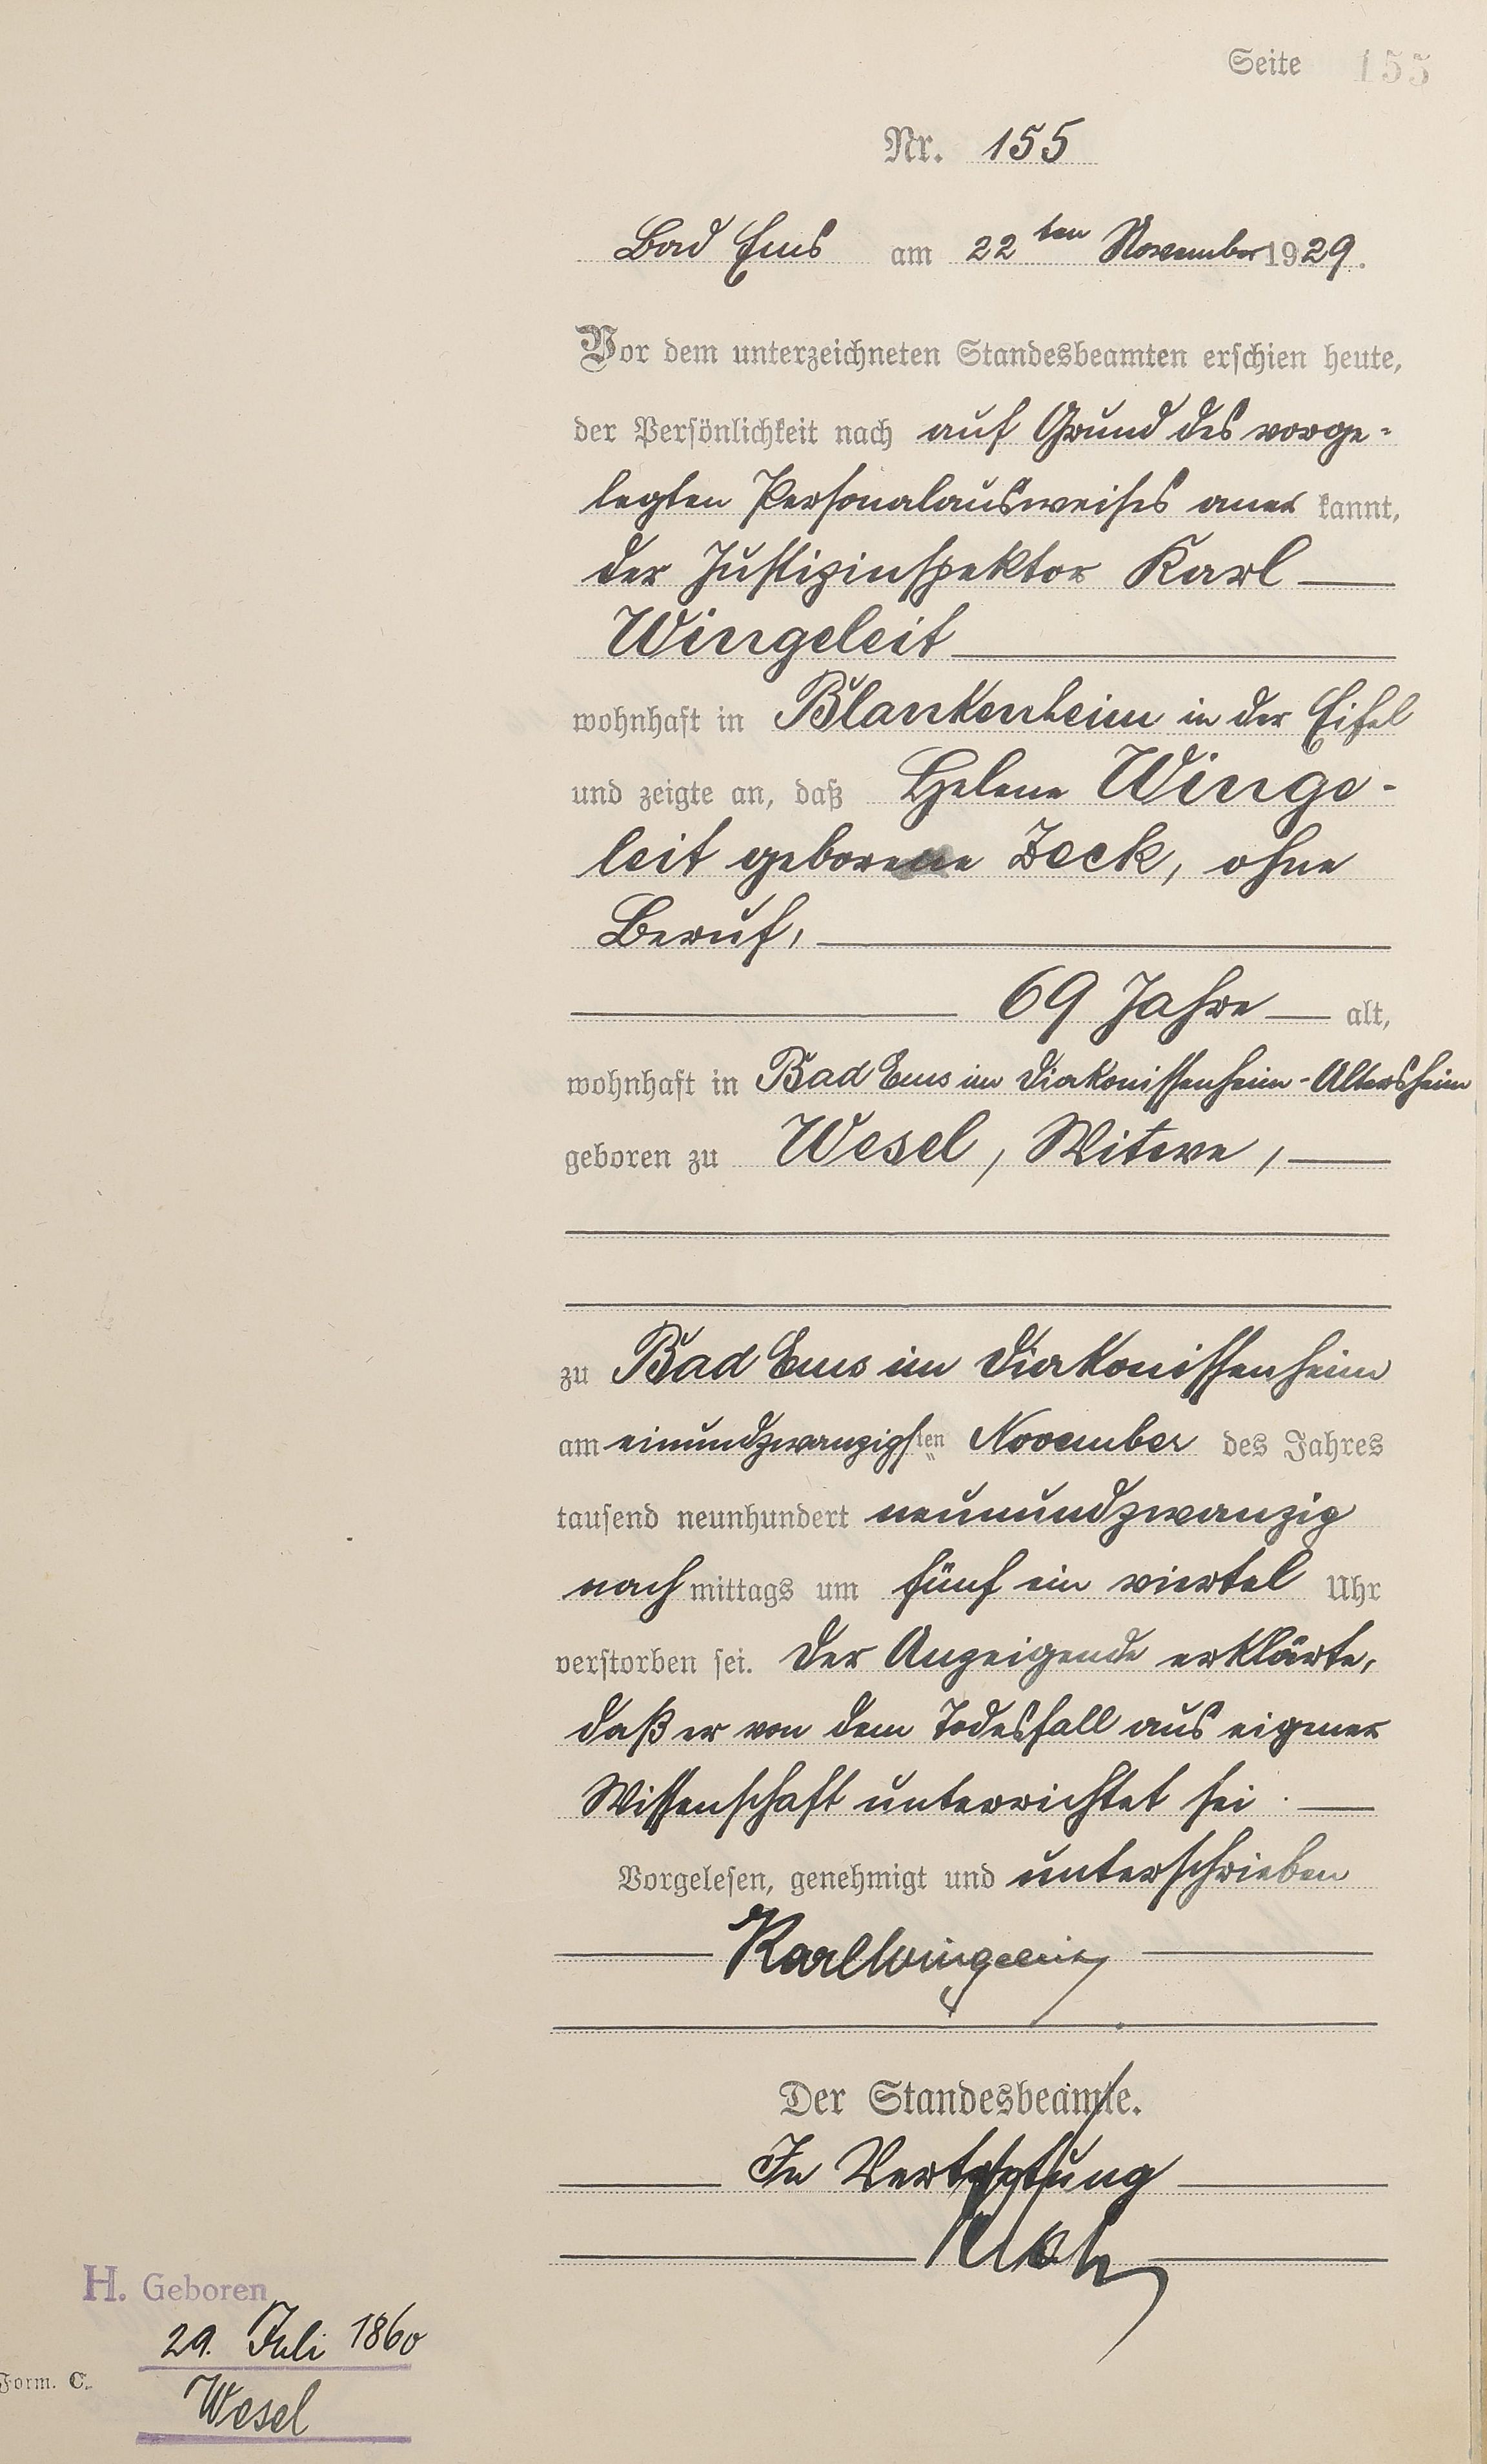 Seite 155
Nr. 155
Bad Ems am 22ten November 1929.
Vor dem unterzeichneten Standesbeamten erschien heute,
der Persönlichkeit nach auf Grund des vorge-
legten Personalausweises aner kannt,
der Justizinspektor Karl
Wingeleit
wohnhaft in Blankenheim in der Eifel
und zeigte an, daß Helene Winge-
leit geborene Zeck, ohne
Beruf,
69 Jahre alt,
wohnhaft in Bad Ems im Diakonissenheim-Altersheim
geboren zu Wesel, Witwe,
zu Bad Ems im Diakonissenheim
am einundzwanzigsten November des Jahres
tausend neunhundert neunundzwanzig
nach mittags um fünf ein viertel Uhr
verstorben sei. Der Anzeigende erklärte,
daß er von dem Todesfall aus eigener
Wissenschaft unterrichtet sei.
Vorgelesen, genehmigt und unterschrieben
Karl Wingeleit
Der Standesbeamte.
In Vertretung
H. Geboren
29. Juli 1860
Form. C.
Wesel